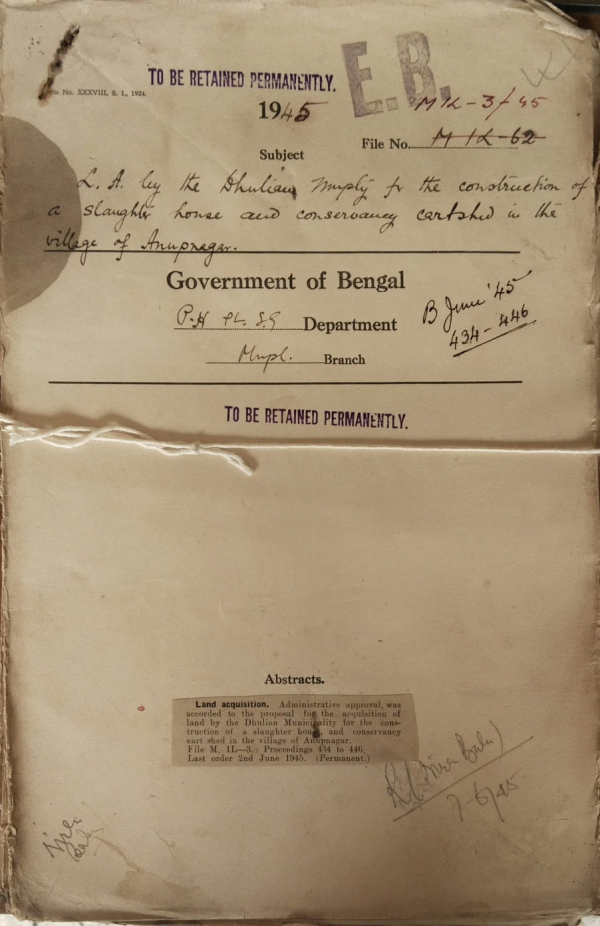 TO BE RETAINED PERMANENTLY.
E.B.
No. XXXVIII, S. I., 1924.
1945
M 1L-3/45
File No. M 1L-62
Subject
L. A. by the Dhulian Muplty fr the construction of
a slaughter house and conservancy cartshed in the
village of Anupnagar.
Government of Bengal
P.H & L.S.G Department
B June '45
434-446
Mupl. Branch
TO BE RETAINED PERMANENTLY.
Abstracts.
Land acquisition. Administrative approval was
accorded to the proposal for the acquisition of
land by the Dhulian Municipality for the cons-
truction of a slaughter house and conservancy
cart shed in the village of Anupnagar.
File M. 1L—3. Proceedings 434 to 446.
Last order 2nd June 1945. (Permanent.)
7-6/45